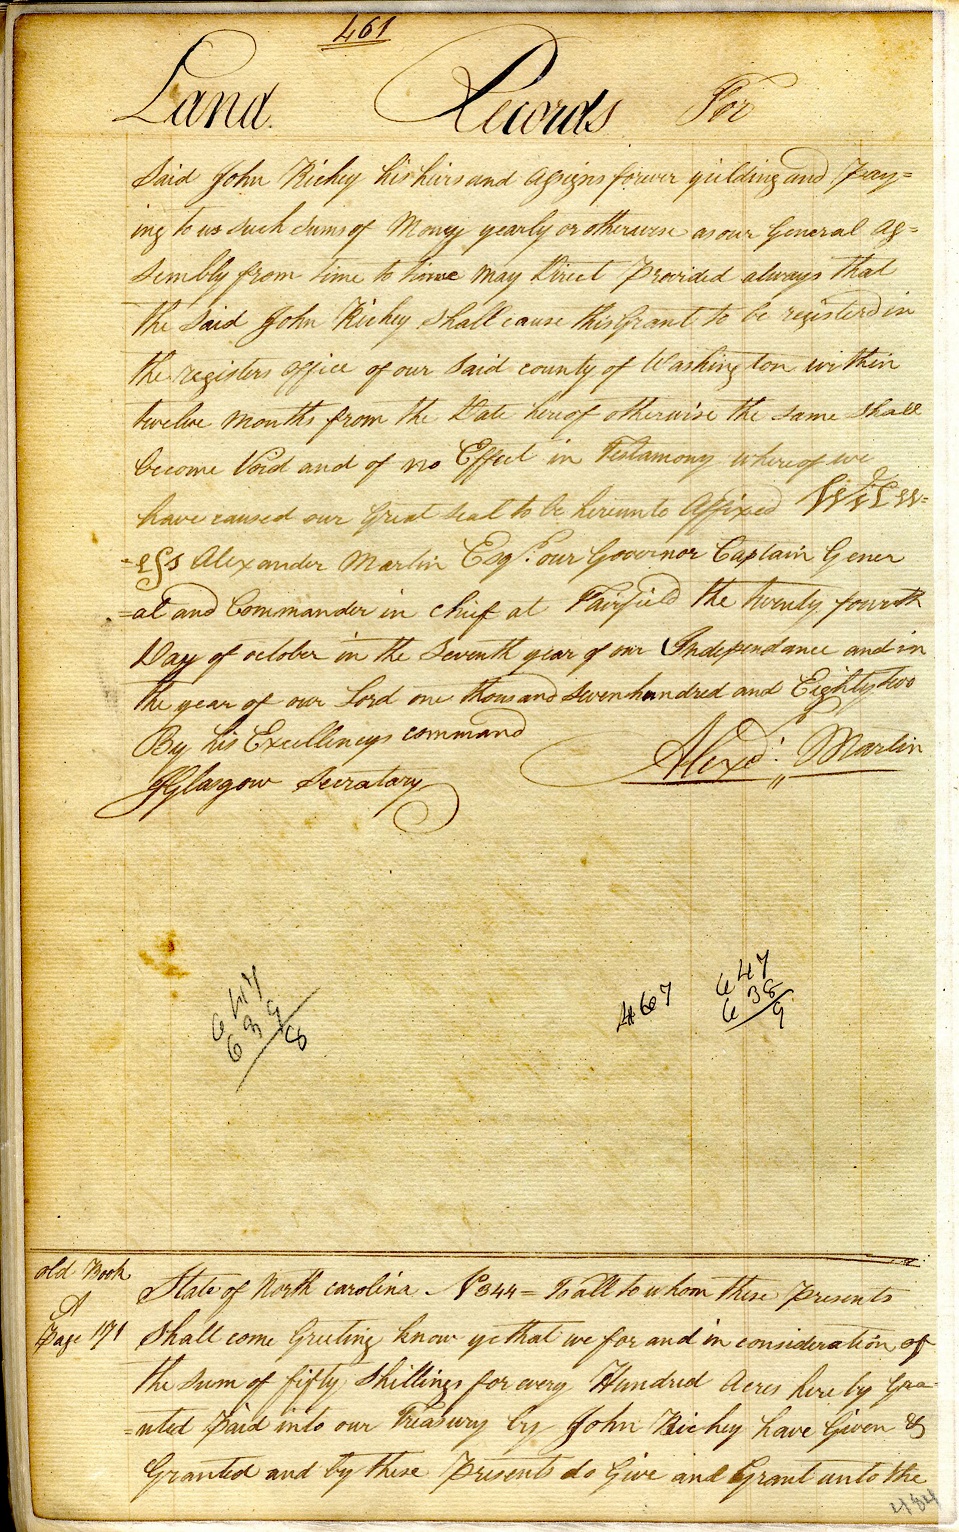 461
Land Records For
Said John Richey his heirs and assigns forever yielding and Pay=
ing to us such sums of Money yearly or otherwise as our General As=
sembly from time to time may Direct Provided always that
the Said John Richey Shall cause this Grant to be registerd in
the registers office of our Said county of Washington within
twelve months from the Date hereof otherwise the same shall
become Void and of no Effect in Testamony whereof we
have caused our Great Seal to be hereunto Affixed Witn=
=ess Alexander Martin Esqr. our Governor Captain Gener
=al and Commander in chief at Fairfield the twenty fourth
Day of october in the Seventh year of our Independance and in
the year of our Lord one thousand Seven hundred and Eighty two
By his Excellencys command
Alexd: Martin
JGlasgow Secratary
647
639
8
467
647
638
9
old Book
A
Page 171
State of North carolina No 344 = To all to whom these Presents
Shall come Greeting know ye that we for and in consideration of
the Sum of fifty Shillings for every Hundred Acres here by Gra=
=nted Paid into our Treasury by John Richey have Given &
Granted and by these Presents do Give and Grant unto the
484